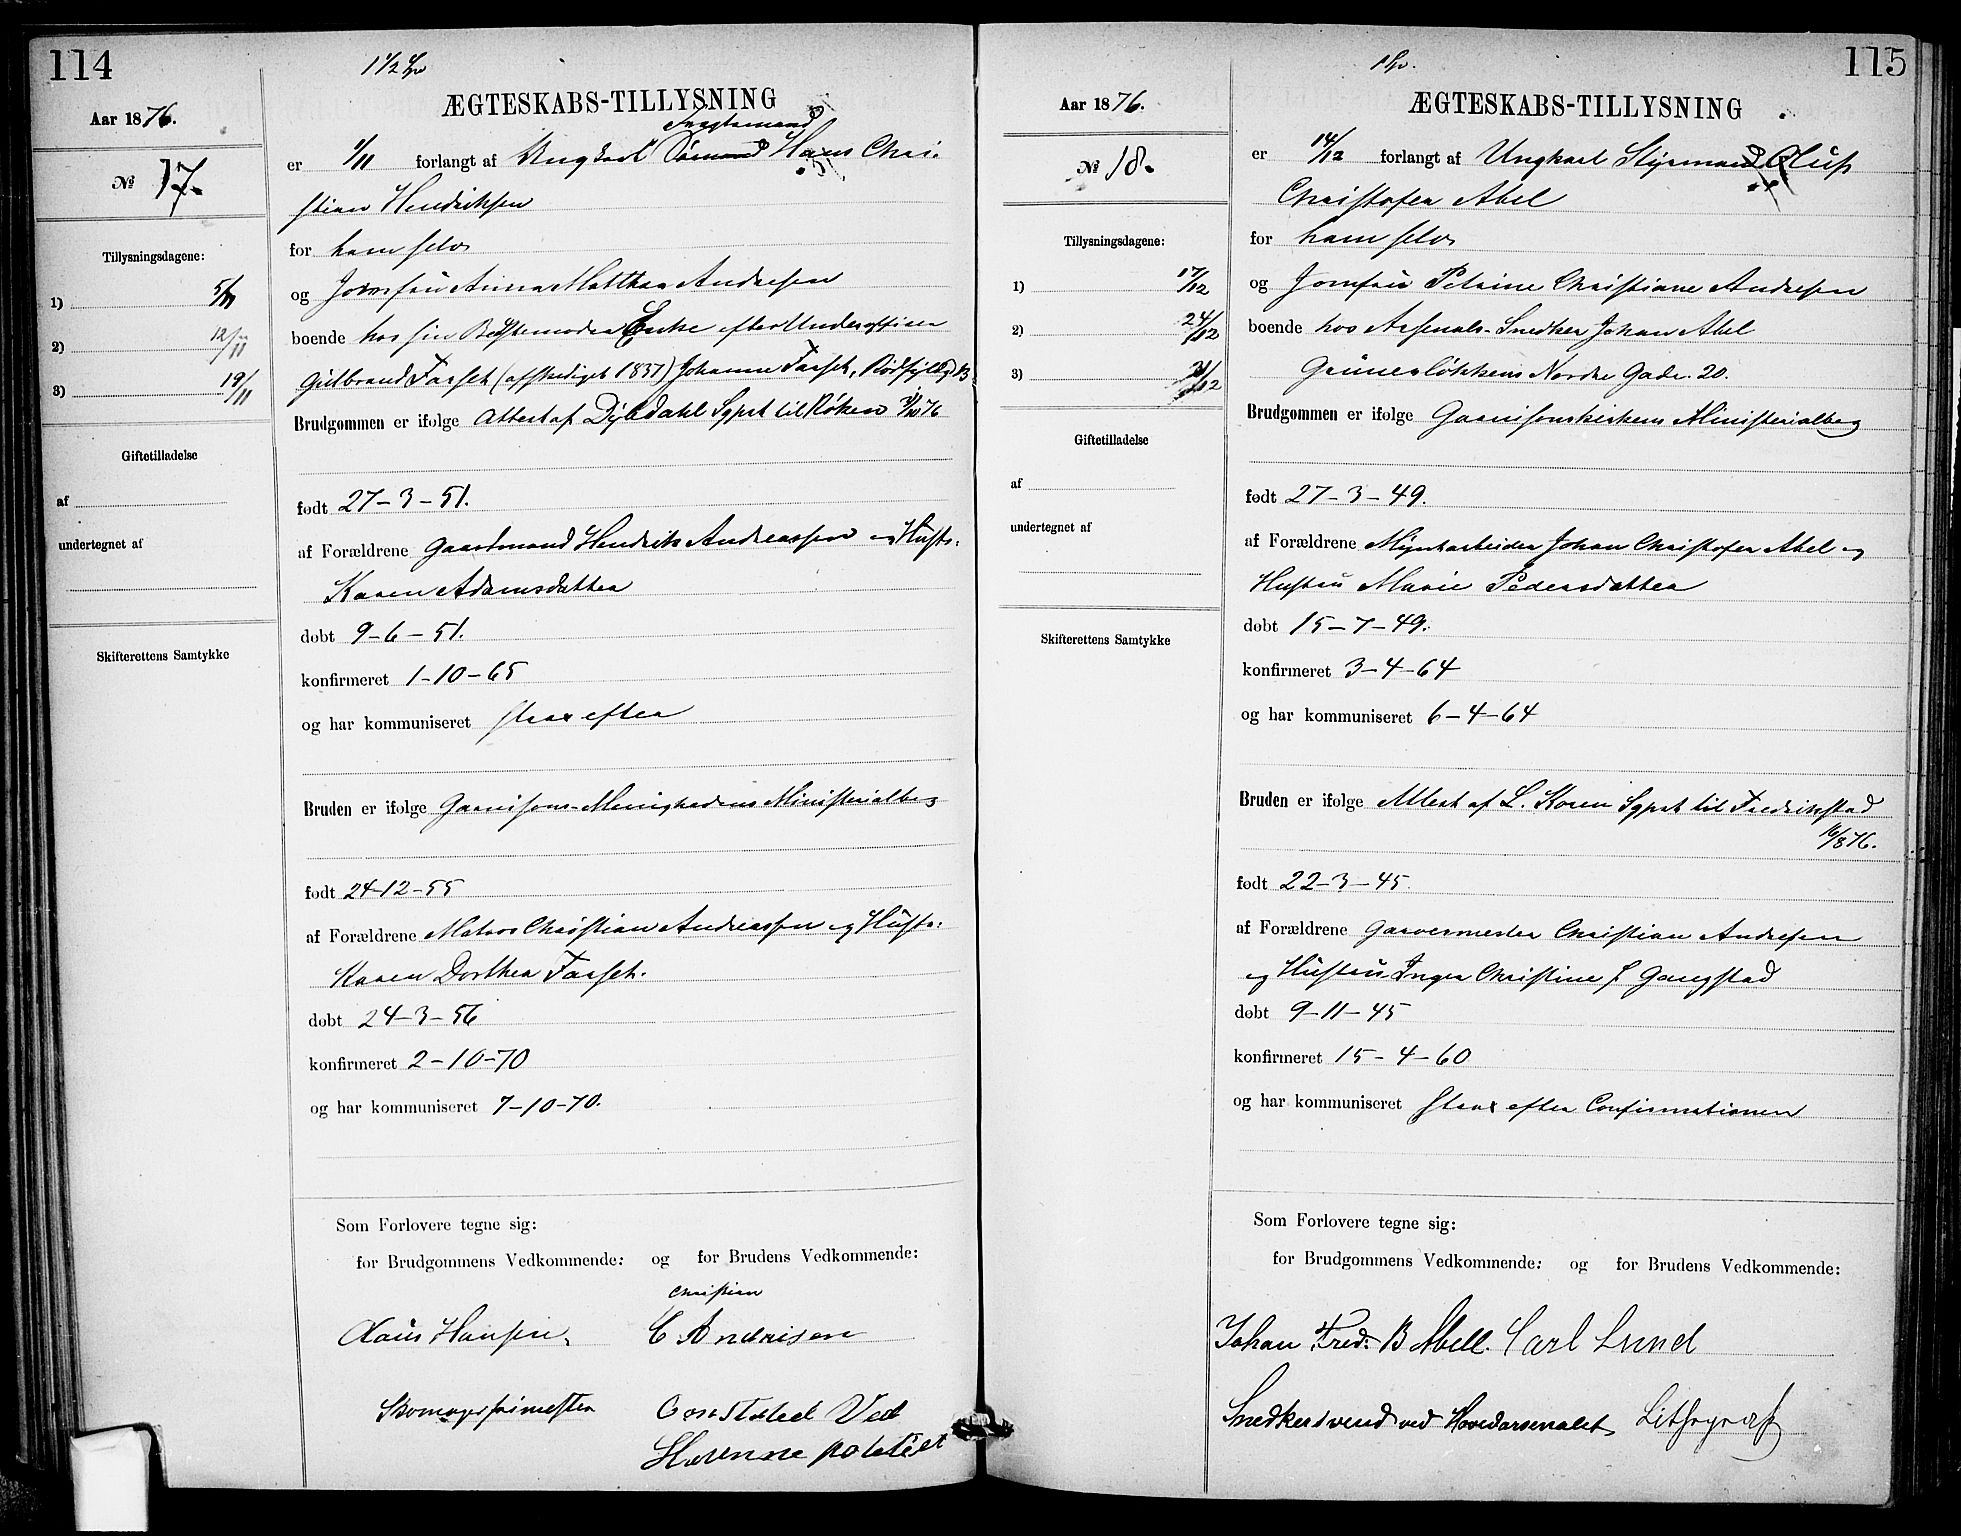 114
1 1/2 Sp
Aar 1876.
№ 17.
Tillysningsdagene:
1) 5/11
2) 12/11
3) 19/11
Giftetilladelse
af
undertegnet af
Skifterettens Samtykke
ÆGTESKABS-TILLYSNING
Fragtemand
er 1/11 forlangt af Ungkarl Sømand Hans Chri-
stian Hendriksen
for ham selv
og Jomfru Anna Mathea Andresen
boende hos sin Bestemoder Enke efter Underofficer
Gulbrand Faaset (afskediget 1837) Johanne Faaset,
Brudgommen er ifølge Attest af Dybdahl Sgprt til Røken 31/10 76
født 27-3-51.
af Forældrene Gaardmand Hendrik Andreassen og Hustr.
Karen Adamsdatter
døbt 9-6-51.
konfirmeret 1-10-65
og har kommuniseret strax efter
Bruden er ifølge Garnisons-Menighedens Ministerialbog
født 24-12-55
af Forældrene Matros Christian Andreassen og Hustr:
Karen Dorthea Faaset.
døbt 24-3-56
konfirmeret 2-10-70
og har kommuniseret 7-10-70.
Som Forlovere tegne sig:
for Brudgommens Vedkommende: og for Brudens Vedkommende:
Christian
Claus Hansen, C Andrisen
Skomagersvimester Constabel Ved
Havnne politiet
115
1 Sp.
Aar 1876.
№ 18.
Tillysningsdagene:
1) 17/12
2) 24/12
3) 31/12
Giftetilladelse
af
undertegnet af
Skifterettens Samtykke
ÆGTESKABS-TILLYSNING
er 14/12 forlangt af Ungkarl Styrmand Oluf
Christofer Abel
for ham selv
og Jomfru Petrine Christiane Andresen
boende hos Arsenals-Snedker Johan Abel
Grünerløkkens Nordre Gade. 20.
Brudgommen er ifølge Garnisonskirkens Ministerialbog
født 27-3-49.
af Forældrene Myntarbeider Johan Christofer Abel og
Hustru Marie Pedersdatter
døbt 15-7-49.
konfirmeret 3-4-64
og har kommuniseret 6-4-64
Bruden er ifølge Attest af L. Koren Sgprt til Fredrikstad
16/8 76.
født 22-3-45.
af Forældrene Garvermester Christian Andresen
og Hustru Inger Christine f Gangstad
døbt 9-11-45
konfirmeret 15-4-60
og har kommuniseret strax efter Confirmationen
Som Forlovere tegne sig:
for Brudgommens Vedkommende: og for Brudens Vedkommende:
Johan Fred: B Abell. Carl Lund
Snedkersvend ved Hovedarsenalet Lithograf